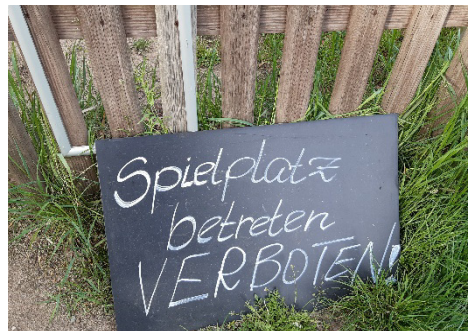 Spielplatz
betreten
VERBOTEN!